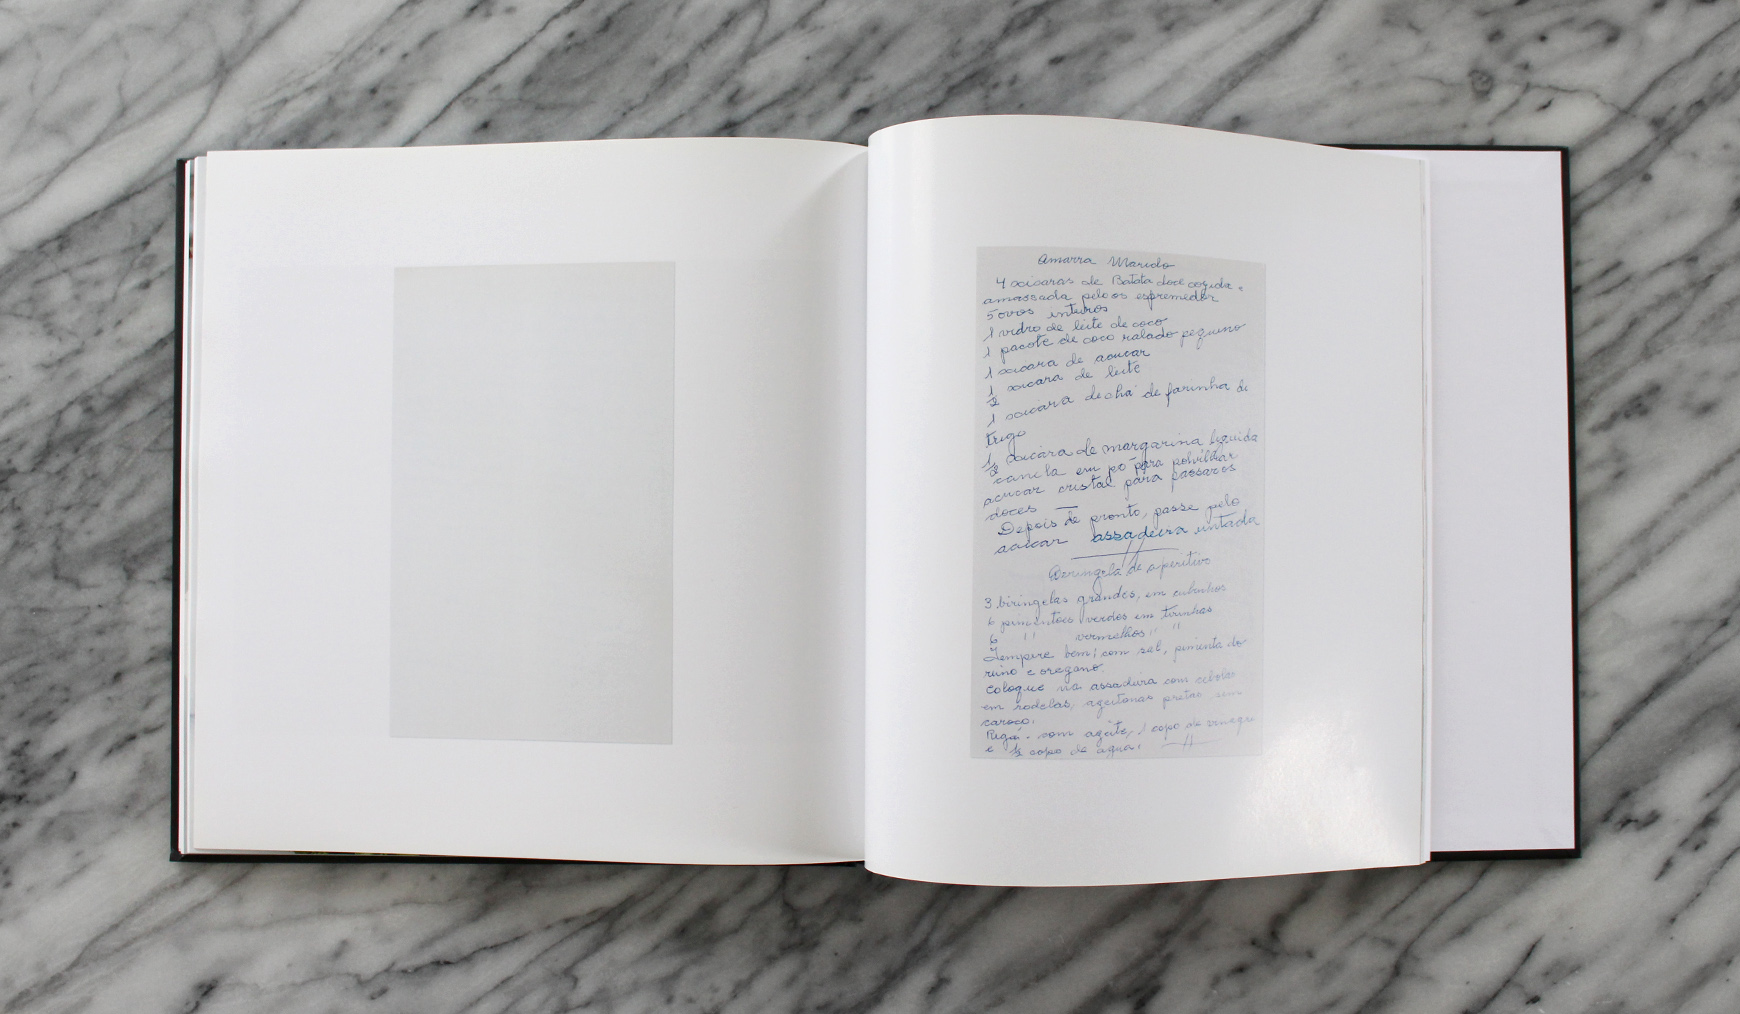 Amarra Marido
4 xicaras de Batata doce cozida e
amassada pelo os espremedor
5 ovos inteiros
1 vidro de leite de coco
1 pacote de coco ralado pequeno
1 xicara de acucar
1 xicara de leite
½
1 xicara de chá de farinha de
trigo
½ xicara de margarina liquida
canela em pó para polvilhar
acucar cristal para passar os
doces
Depois de pronto, passe pelo
acucar assadeira untada
Beringela de aperitivo
3 biringelas grandes, em cubinhos
6 pimentoes verdes em tirinhas
6 " vermelhos " "
Tempere bem, com sal, pimenta do
reino e oregano.
coloque na assadeira com cebolas
em rodelas, azeitonas pretas sem
caroço.
com azeite, 1 copo de vinagre
e ½ copo de agua.